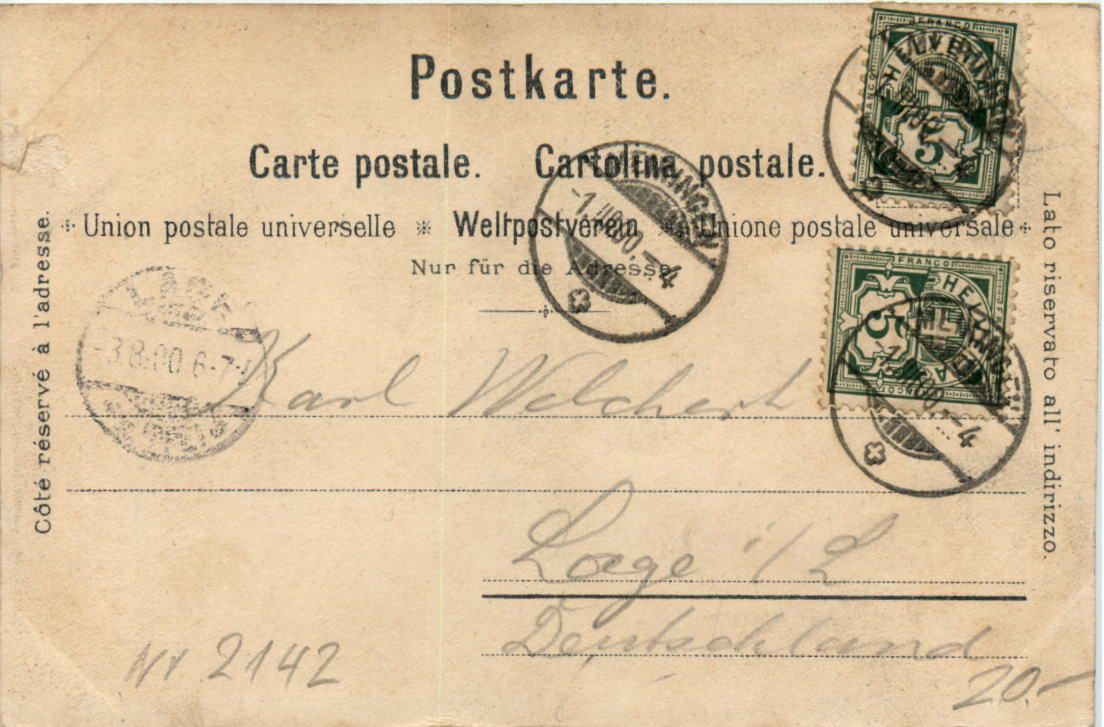 Postkarte.
Carte postale. Cartolina postale.
Union postale universelle * Weltpostverein * Unione postale universale
Nur für die Adresse.
Côté réservé à l'adresse.
Lato riservato all' indirizzo.
FRANCO
HELVETIA
5
FRANCO
HELVETIA
5
MEIRINGEN
-1.VIII.00.-4
LAGE
-3.8.00.6-7
Karl
Lage i/L
Deutschland
Nr 2142
20.-